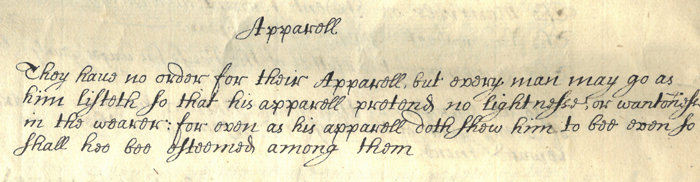 Apparell
They have no order for their Apparell, but every man may go as
him listeth so that his apparell pretend no lightnesse or wantoness
in the wearer: for even as his apparell doth shew him to bee even so
shall hee bee esteemed among them